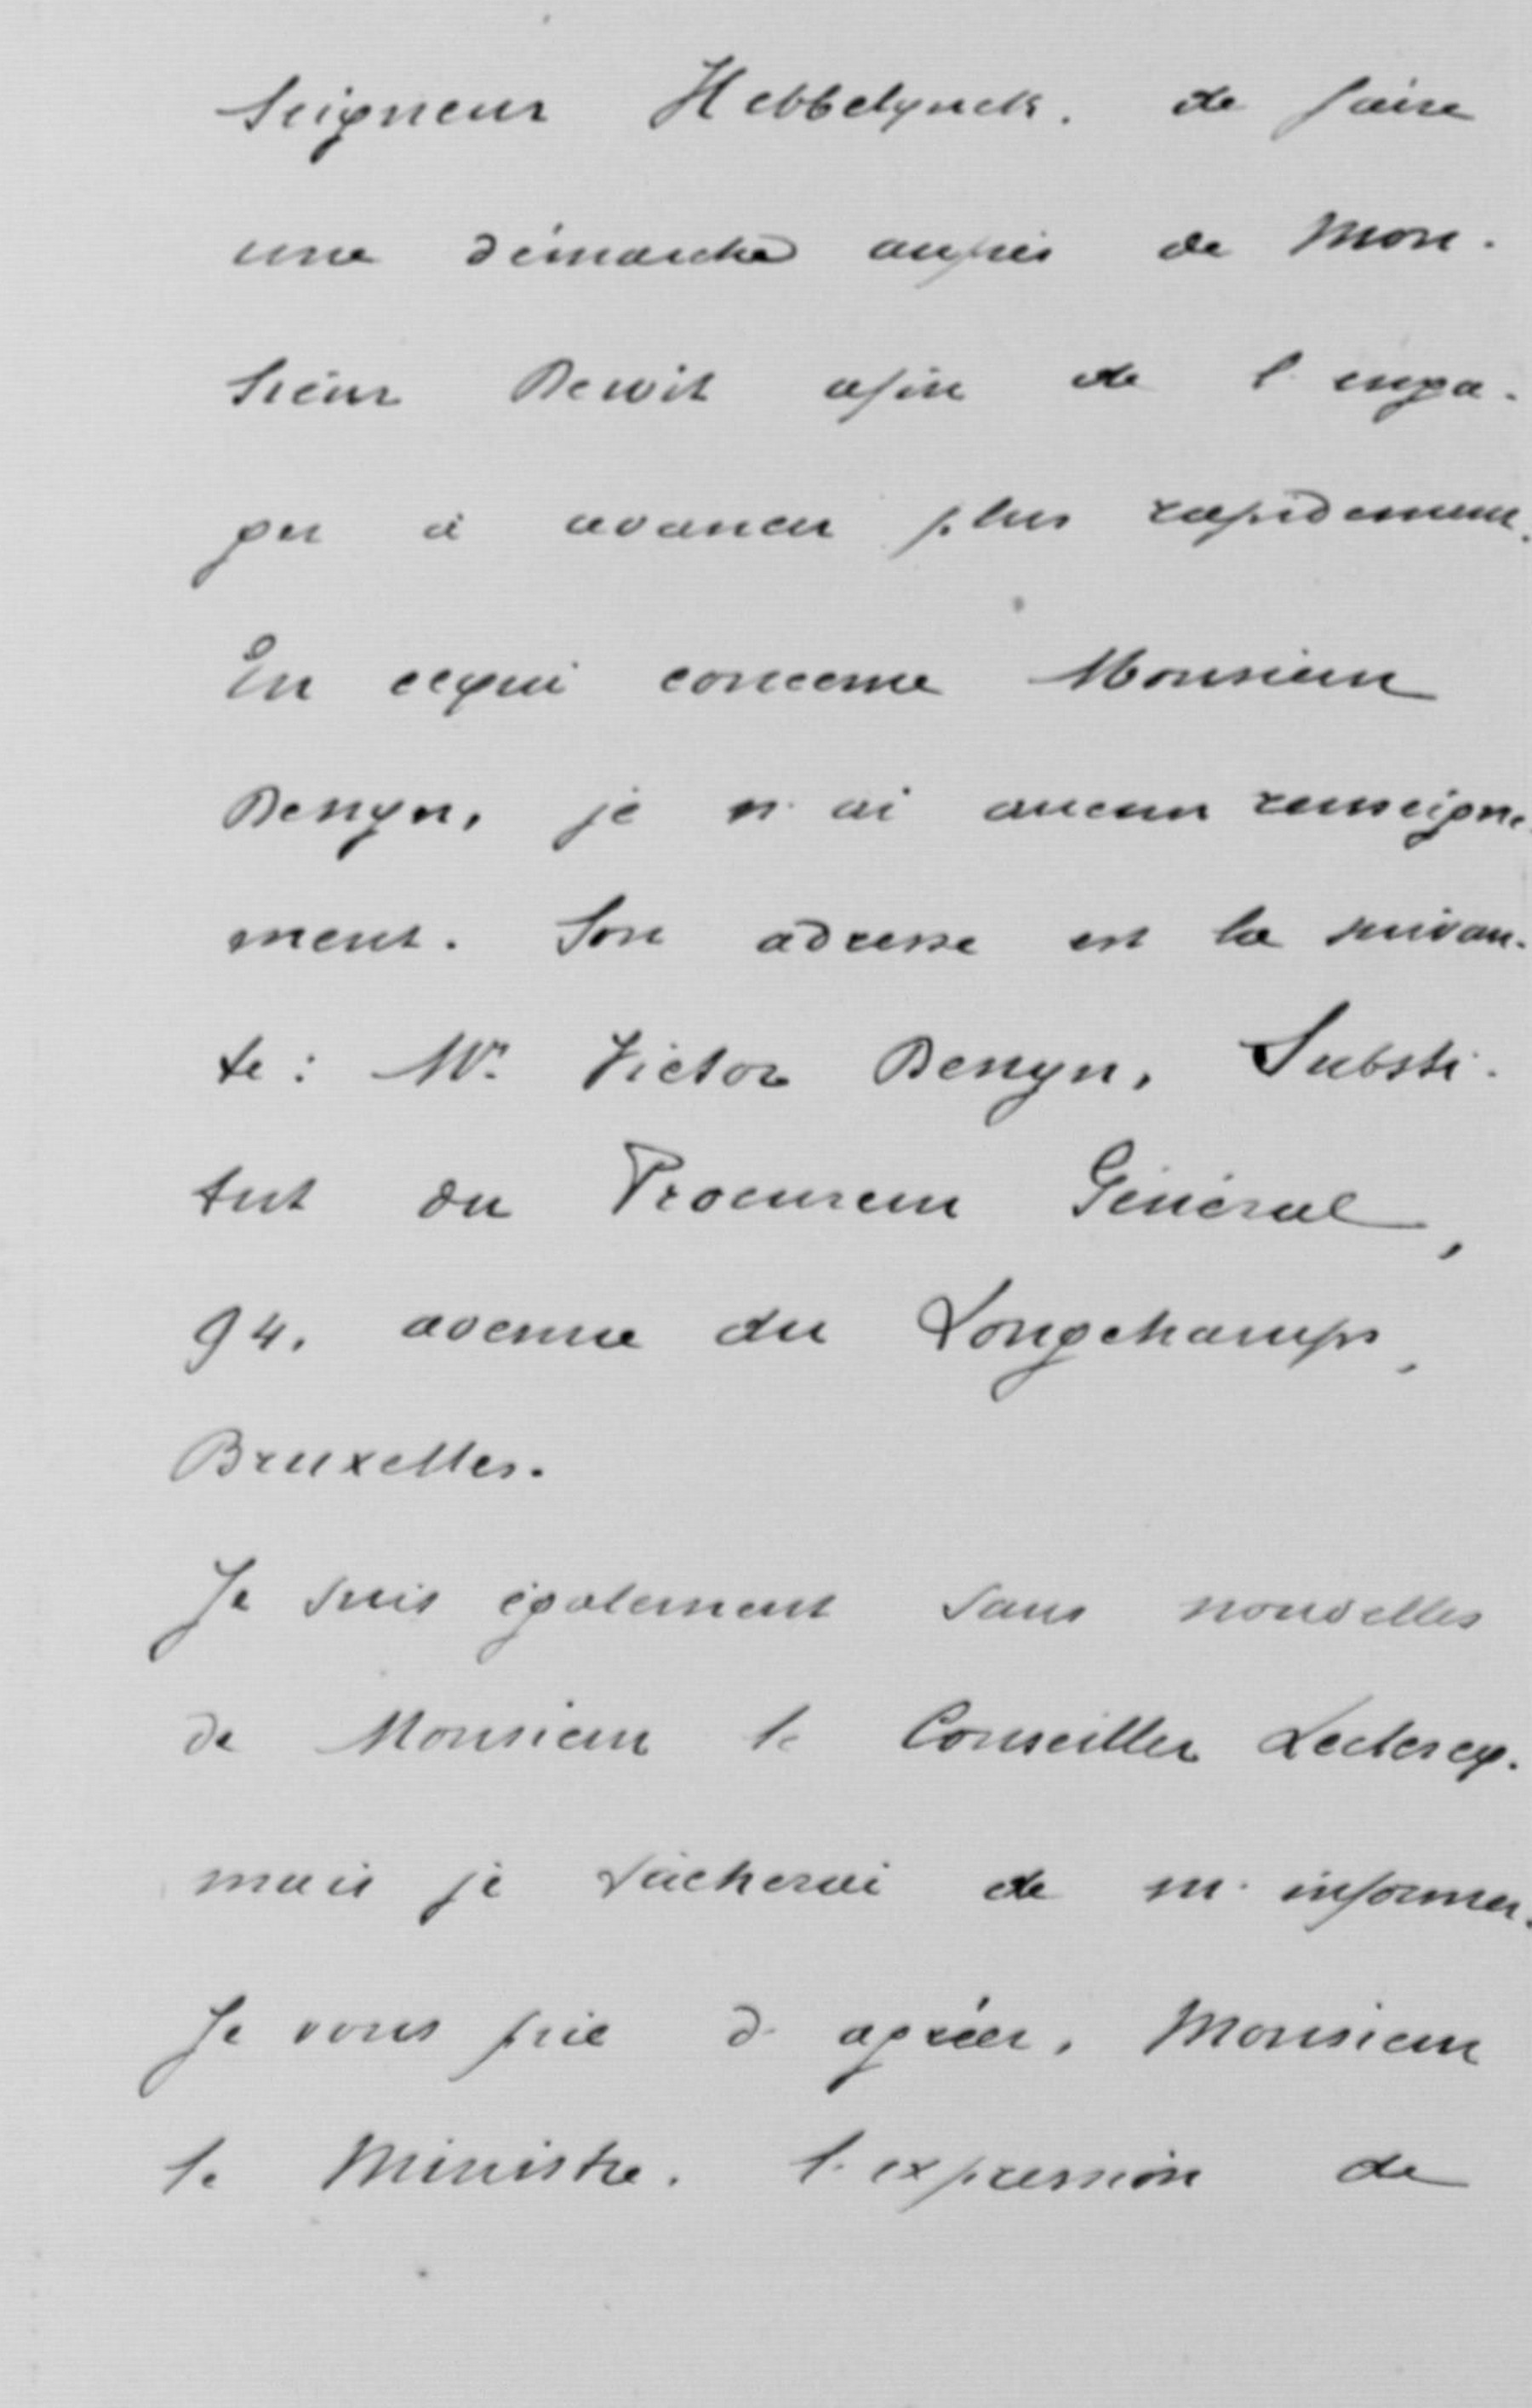 Seigneur Hebbelynck. de faire
une démarche auprès de Mon-
sieur Dewit afin de l'enga-
ger à avancer plus rapidement.
En cequi concerne Monsieur
Denyn, je n'ai aucun renseigne-
ment. Son adresse est la suivan-
te: Mr. Victor Denyn, Substi-
tut du Procureur Général,
94, avenue du Longchamps,
Bruxelles.
Je suis également sans nouvelles
de Monsieur le Conseiller Leclercq.
mais je tâcherai de m'informer.
Je vous prie d'agréer, Monsieur
le Ministre, l'expression de